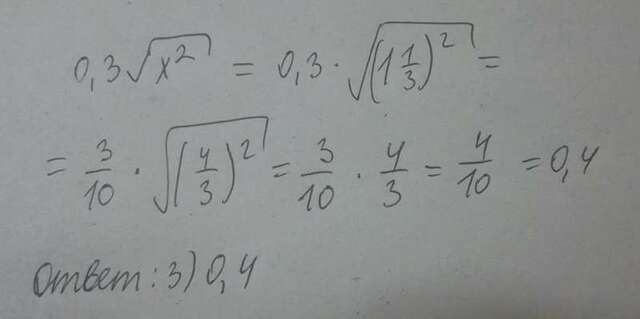 0,3√x² = 0,3 · √(1 1/3)² =
= 3/10 · √(4/3)² = 3/10 · 4/3 = 4/10 = 0,4
Ответ: 3) 0,4